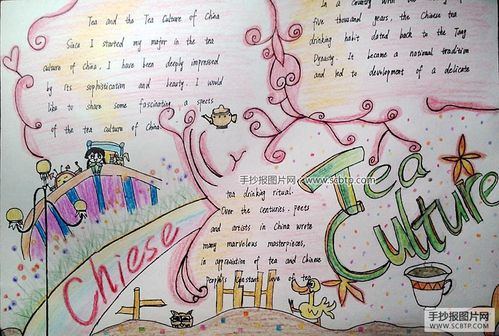 Tea and the Tea Culture of China
Since I started my major in the tea
culture of China, I have been deeply impressed
by its sophistication and beauty. I would
like to share some fascinating a spects
of the tea culture of China
five thousand years, the Chinese tea
drinking habit dated back to the Tang
Dynasty. It became a national tradition
and led to development of a delicate
tea drinking ritual.
Over the centuries, poets
and artists in China wrote
many marvelous masterpieces,
in appreciation of tea and Chinese
People's constant love of tea
Chiese
Tea
Culture
手抄报图片网 www.scbtp.com
手抄报图片网
WWW.SCBTP.COM